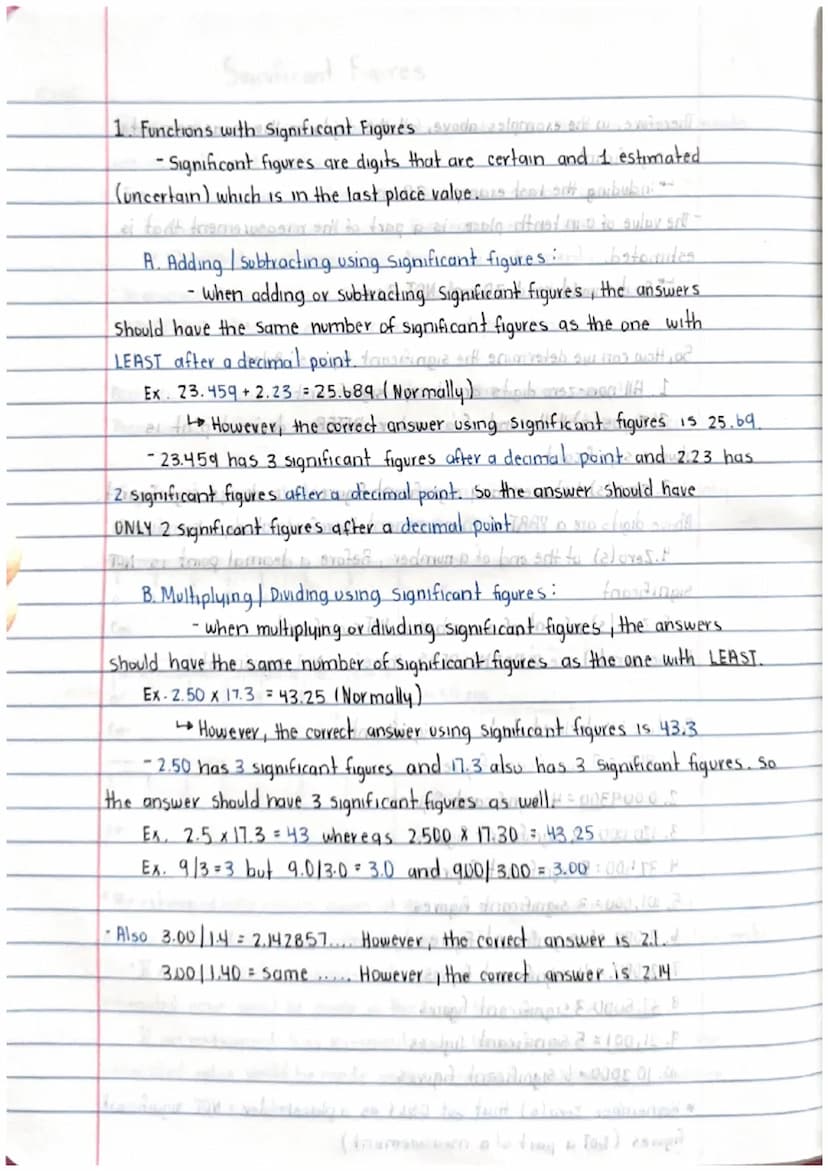 1. Functions with Significant Figures
- Significant figures are digits that are certain and 1 estimated
(uncertain) which is in the last place value.
A. Adding / Subtracting using significant figures:
- When adding or subtracting significant figures, the answers
should have the same number of significant figures as the one with
LEAST after a decimal point.
Ex. 23.459 + 2.23 = 25.689 (Normally)
↳ However, the correct answer using significant figures is 25.69.
- 23.459 has 3 significant figures after a decimal point and 2.23 has
2 significant figures after a decimal point. So the answer should have
ONLY 2 significant figures after a decimal point.
B. Multiplying / Dividing using significant figures:
- When multiplying or dividing significant figures, the answers
should have the same number of significant figures as the one with LEAST.
Ex. 2.50 x 17.3 = 43.25 (Normally)
↳ However, the correct answer using significant figures is 43.3
- 2.50 has 3 significant figures and 17.3 also has 3 significant figures. So
the answer should have 3 significant figures as well.
Ex. 2.5 x 17.3 = 43 whereas 2.500 x 17.30 = 43.25
Ex. 9/3 = 3 but 9.0/3.0 = 3.0 and 9.00/3.00 = 3.00
• Also 3.00/1.4 = 2.142857.... However, the correct answer is 2.1.
3.00/1.40 = same ..... However, the correct answer is 2.14